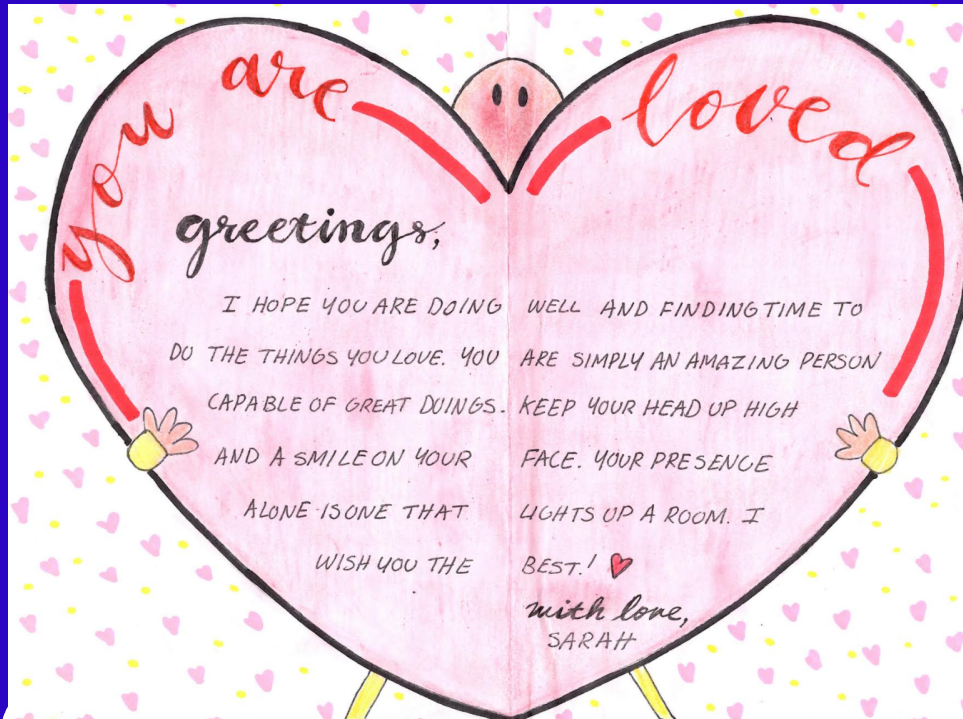 you are loved
greetings,
I HOPE YOU ARE DOING WELL AND FINDING TIME TO
DO THE THINGS YOU LOVE. YOU ARE SIMPLY AN AMAZING PERSON
CAPABLE OF GREAT DOINGS. KEEP YOUR HEAD UP HIGH
AND A SMILE ON YOUR FACE. YOUR PRESENCE
ALONE IS ONE THAT LIGHTS UP A ROOM. I
WISH YOU THE BEST!
with love,
SARAH